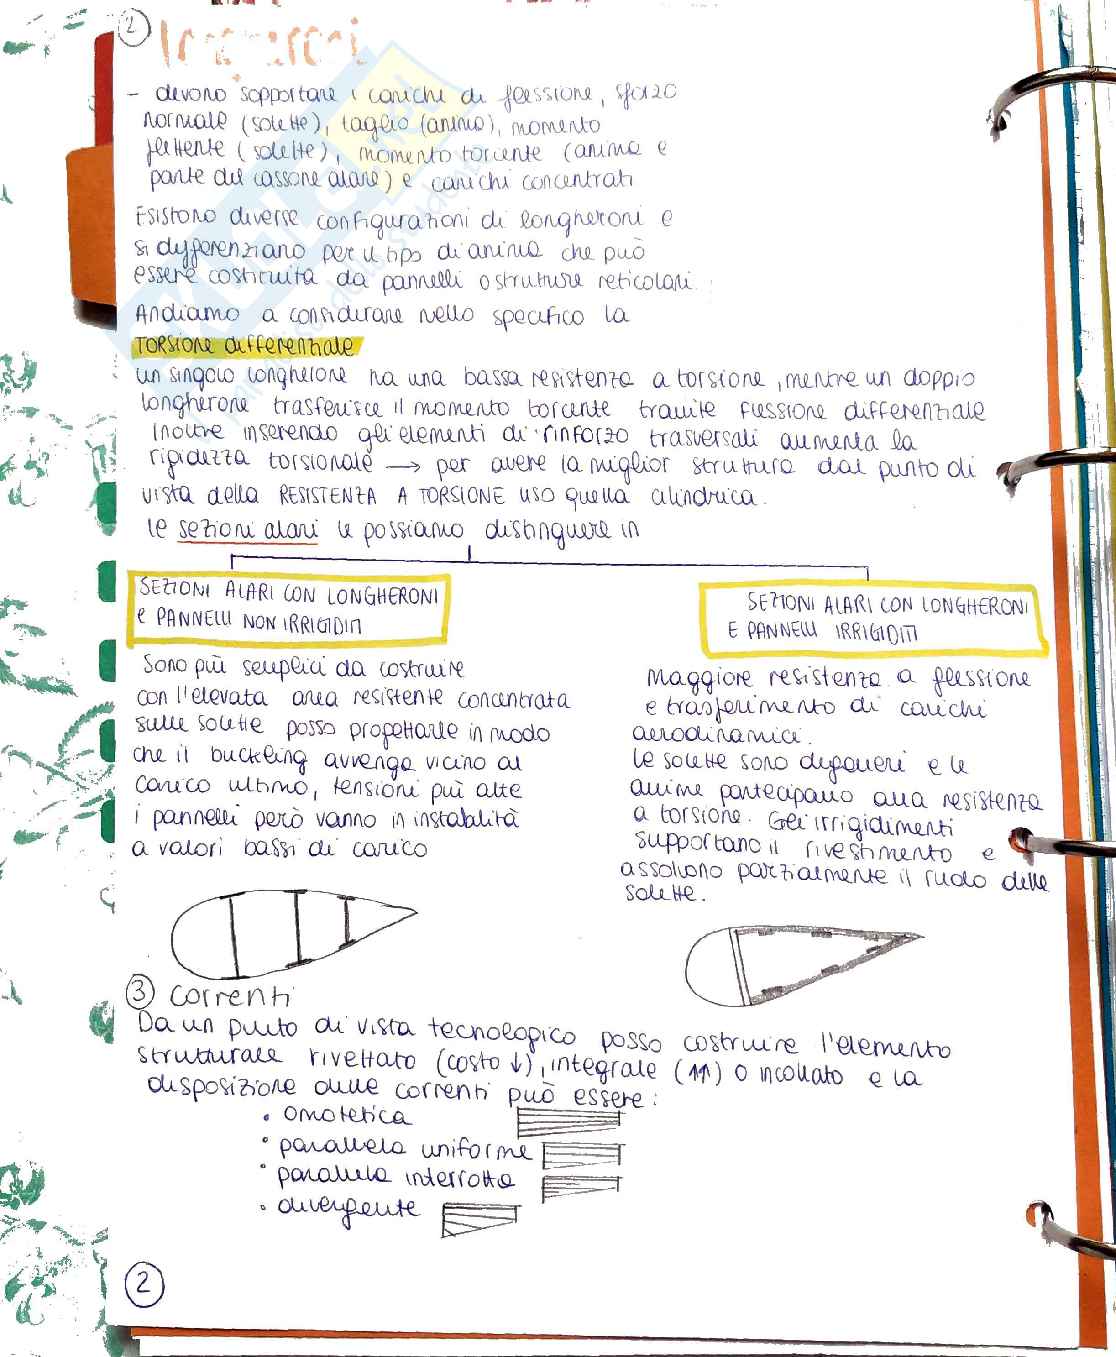 2
- devono sopportare i carichi di flessione, sforzo
normale (solette), taglio (anima), momento
flettente (solette), momento torcente (anima e
parte del cassone alare) e carichi concentrati
Esistono diverse configurazioni di longheroni e
si differenziano per il tipo di anima che può
essere costituita da pannelli o strutture reticolari.
Andiamo a considerare nello specifico la
TORSIONE differenziale
un singolo longherone ha una bassa resistenza a torsione, mentre un doppio
longherone trasferisce il momento torcente tramite flessione differenziale
Inoltre inserendo gli elementi di rinforzo trasversali aumenta la
rigidezza torsionale → per avere la miglior struttura dal punto di
vista della RESISTENZA A TORSIONE uso quella cilindrica.
le sezioni alari le possiamo distinguere in
SEZIONI ALARI CON LONGHERONI
e PANNELLI NON IRRIGIDITI
SEZIONI ALARI CON LONGHERONI
E PANNELLI IRRIGIDITI
Sono più semplici da costruire
con l'elevata area resistente concentrata
sulle solette posso progettarle in modo
che il buckling avvenga vicino al
carico ultimo, tensioni più alte
i pannelli però vanno in instabilità
a valori bassi di carico
Maggiore resistenza a flessione
e trasferimento di carichi
aerodinamici.
Le solette sono leggeri e le
anime partecipano alla resistenza
a torsione. Gli irrigidimenti
supportano il rivestimento e
assolvono parzialmente il ruolo delle
solette.
3 Correnti
Da un punto di vista tecnologico posso costruire l'elemento
strutturale rivettato (costo ↓), integrale (↑↑) o incollato e la
disposizione delle correnti può essere:
• omotetica
• parallela uniforme
• parallela interrotta
• divergente
2